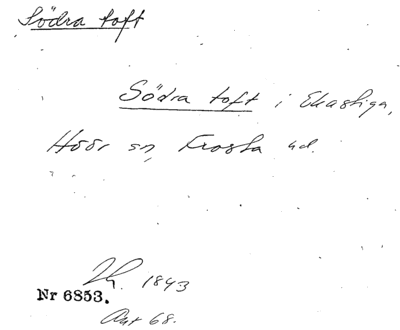 Södra toft
Södra toft i Ekastiga,
Höör sn, Frosta hd.
1843
Nr 6853.
Akt 68.